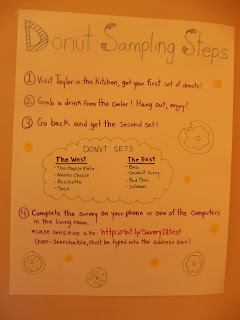 Donut Sampling Steps
① Visit Taylor in the Kitchen, get your first set of donuts!
② Grab a drink from the cooler! Hang out, enjoy!
③ Go back and get the second set!
DONUT SETS
The West
- The Cheese Plate
- Nacho Cheese
- Porchetta
- Taco
The East
- BBQ
- Coconut Curry
- Pad Thai
- Salmon
④ Complete the survey on your phone or one of the computers
in the living room.
*case sensitive site: http://bit.ly/Savory18test
(non-searchable, must be typed into the address bar)